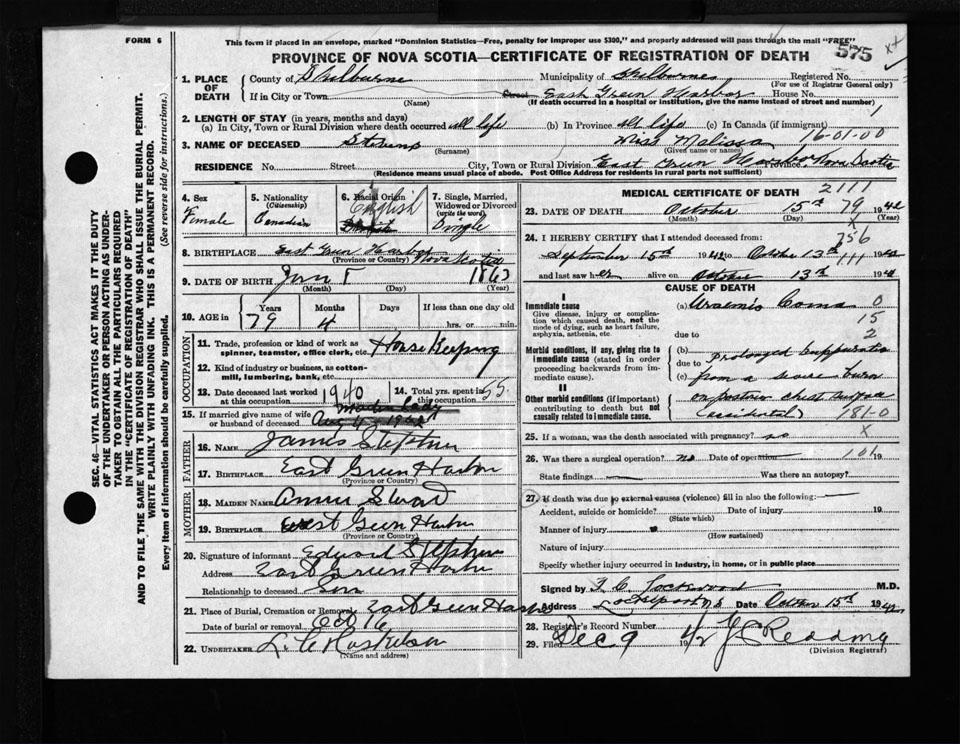 FORM 6
This form if placed in an envelope, marked "Dominion Statistics—Free, penalty for improper use $300," and properly addressed will pass through the mail "FREE"
PROVINCE OF NOVA SCOTIA—CERTIFICATE OF REGISTRATION OF DEATH
575
SEC. 46—VITAL STATISTICS ACT MAKES IT THE DUTY
OF THE UNDERTAKER OR PERSON ACTING AS UNDER-
TAKER TO OBTAIN ALL THE PARTICULARS REQUIRED
IN THE "CERTIFICATE OF REGISTRATION OF DEATH"
AND TO FILE THE SAME WITH THE DIVISION REGISTRAR WHO SHALL ISSUE THE BURIAL PERMIT.
WRITE PLAINLY WITH UNFADING INK. THIS IS A PERMANENT RECORD.
Every item of information should be carefully supplied. (See reverse side for instructions.)
1. PLACE OF DEATH County of Shelburne Municipality of Shelburne Registered No.
(For use of Registrar General only)
If in City or Town Street East Green Harbor House No.
(Name) (If death occurred in a hospital or institution, give the name instead of street and number)
2. LENGTH OF STAY (in years, months and days)
(a) In City, Town or Rural Division where death occurred all life (b) In Province all life (c) In Canada (if immigrant)
16-01-00
3. NAME OF DECEASED Miss Melissa
(Surname) (Given name or names)
RESIDENCE No. Street City, Town or Rural Division East Green Harbor Province Nova Scotia
(Residence means usual place of abode. Post Office Address for residents in rural parts not sufficient)
4. Sex Female
5. Nationality (Citizenship) Canadian
6. Racial Origin English
7. Single, Married, Widowed or Divorced (write the word) Single
8. BIRTHPLACE East Green Harbor Nova Scotia
(Province or Country)
9. DATE OF BIRTH 1863
(Month) (Day) (Year)
10. AGE Years 79 Months 4 Days If less than one day old
hrs. or min.
OCCUPATION
11. Trade, profession or kind of work as spinner, teamster, office clerk, etc. House Keeping
12. Kind of industry or business, as cotton-mill, lumbering, bank, etc.
13. Date deceased last worked at this occupation 1940
14. Total yrs. spent in this occupation 55
15. If married give name of wife or husband of deceased
FATHER
16. NAME James Stephens
17. BIRTHPLACE East Green Harbor
(Province or Country)
MOTHER
18. MAIDEN NAME Annie
19. BIRTHPLACE East Green Harbor
(Province or Country)
20. Signature of informant Edward Stephens
Address East Green Harbor
Relationship to deceased Son
21. Place of Burial, Cremation or Removal East Green Harbor
Date of burial or removal Oct 16
22. UNDERTAKER
(Name and Address)
MEDICAL CERTIFICATE OF DEATH
2111
23. DATE OF DEATH October 15th 79 1942
(Month) (Day) (Year)
24. I HEREBY CERTIFY that I attended deceased from: 756
September 15th 1942 to October 13th 1942
111
and last saw her alive on October 13th 1942
CAUSE OF DEATH
I
Immediate cause
Give disease, injury or complication which caused death, not the mode of dying, such as heart failure, asphyxia, asthenia, etc.
(a) Uraemic Coma 0
15
due to 2
Morbid conditions, if any, giving rise to immediate cause (stated in order proceeding backwards from immediate cause).
(b) Prolonged Suppuration
due to
(c) from a severe burn
II
Other morbid conditions (if important) contributing to death but not causally related to immediate cause.
on chest surface
(accidental) 781-0
25. If a woman, was the death associated with pregnancy? no X
26. Was there a surgical operation? no Date of operation 101 19
State findings Was there an autopsy?
27. If death was due to external causes (violence) fill in also the following:
Accident, suicide or homicide? Date of injury 19
(State which)
Manner of injury
(How sustained)
Nature of injury
Specify whether injury occurred in industry, in home, or in public place
Signed by Lockwood M.D.
Address Lockeport N.S. Date October 15th 1942
28. Registrar's Record Number
29. Filed Dec 9 1942
(Division Registrar)